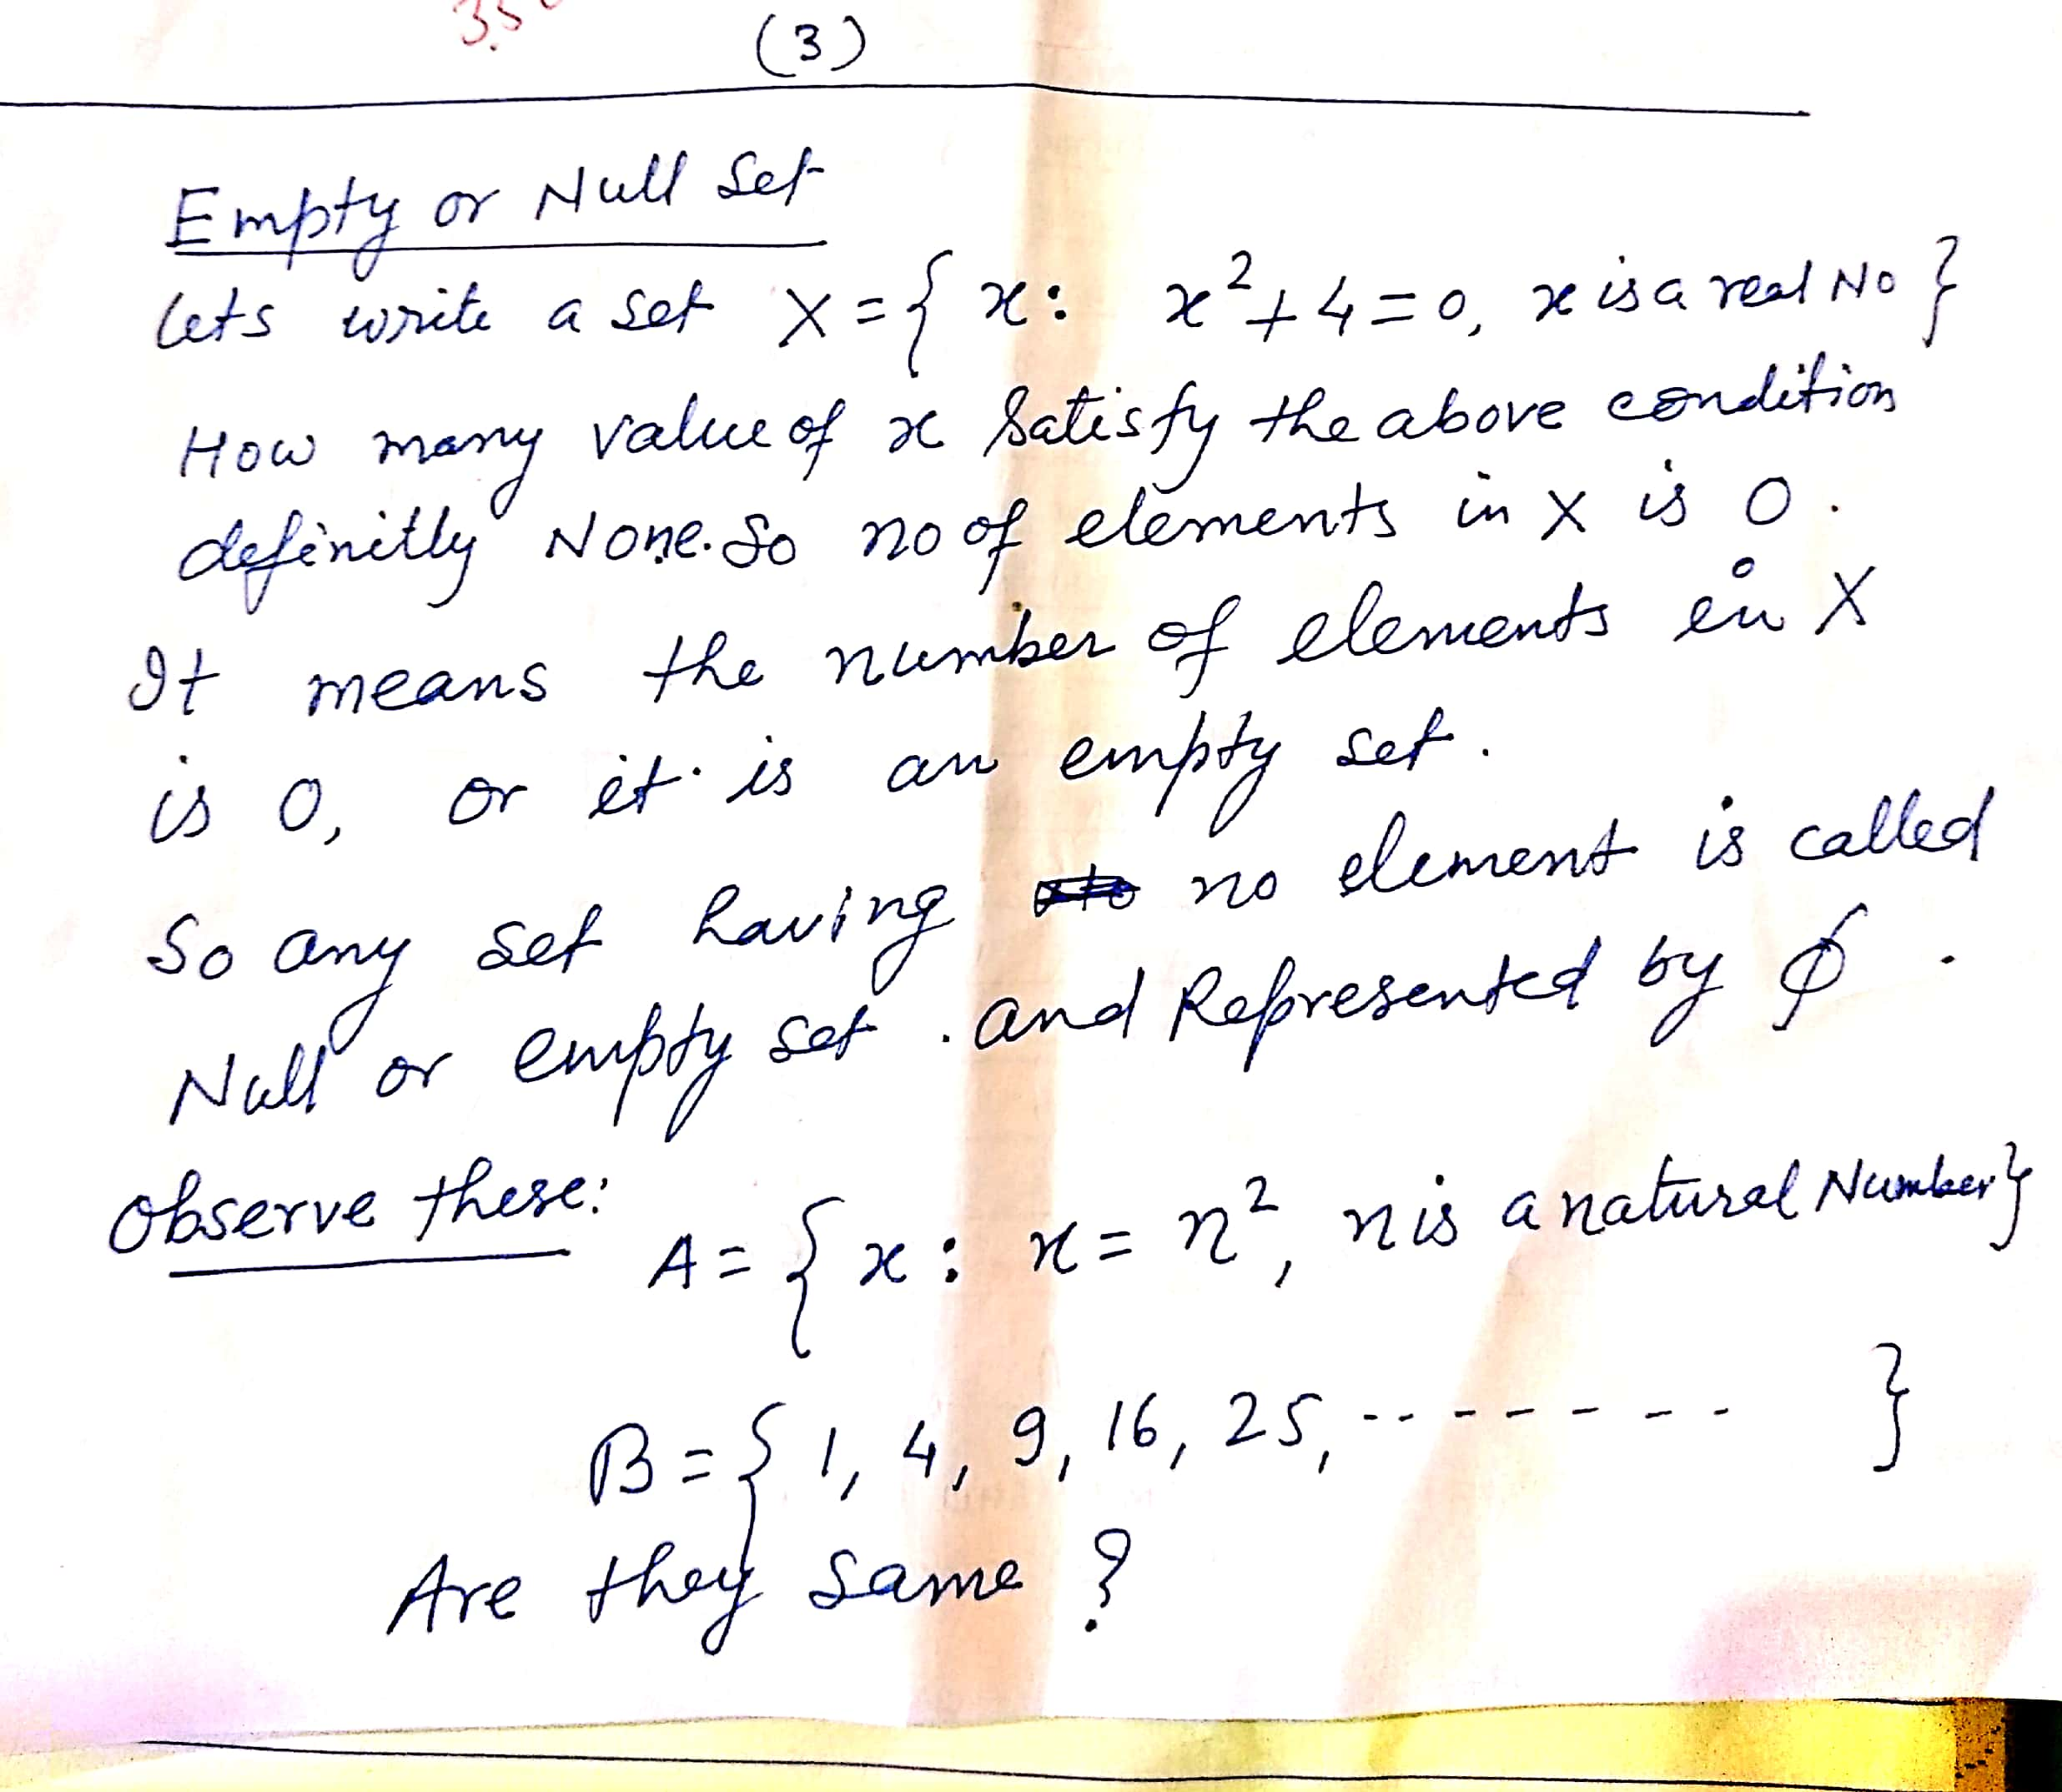 (3)
Empty or Null Set
Lets write a set X = { x : x²+4=0, x is a real No }
How many value of x satisfy the above condition
definitly None. So no of elements in X is 0.
It means the number of elements in X
is 0, or it is an empty set.
So any set having no element is called
Null or empty set. and Represented by ϕ.
Observe these:
A = { x : x = n², n is a natural Number}
B = { 1, 4, 9, 16, 25, --------- }
Are they same ?